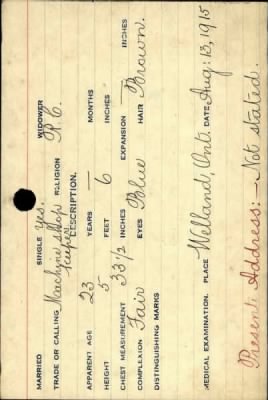 MARRIED SINGLE Yes. WIDOWER
TRADE OR CALLING Machine Shop Keeper RELIGION R.C.
DESCRIPTION.
APPARENT AGE 23 YEARS — MONTHS
HEIGHT 5 FEET 6 INCHES
CHEST MEASUREMENT 33 1/2 INCHES EXPANSION — INCHES
COMPLEXION Fair EYES Blue HAIR Brown.
DISTINGUISHING MARKS
MEDICAL EXAMINATION. PLACE Welland, Ont. DATE Aug: 13, 1915
Present Address:— Not stated.